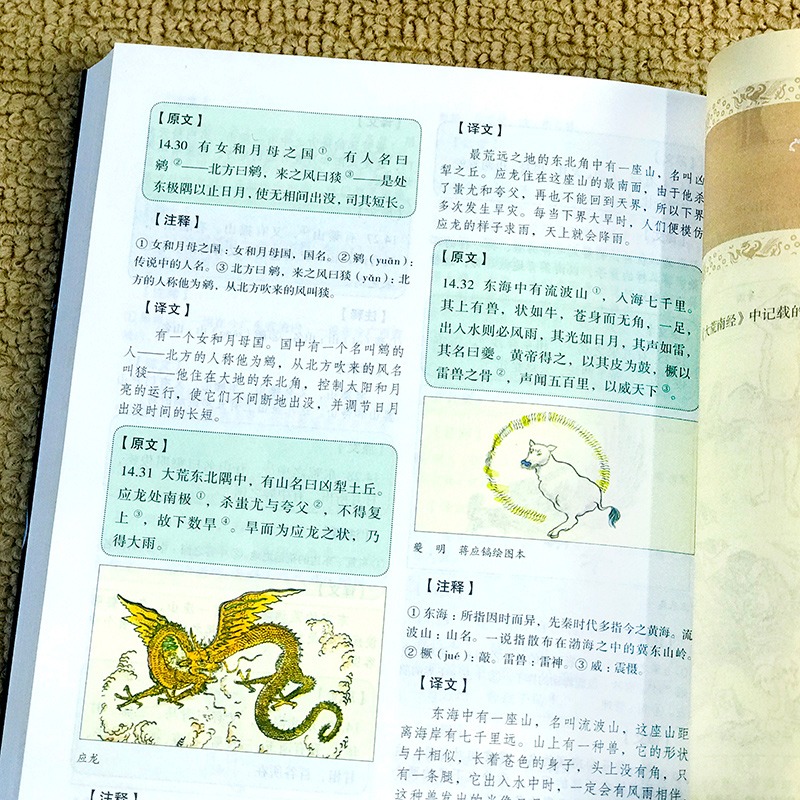 【原文】
14.30 有女和月母之国①。有人名曰
鹓②——北方曰鹓，来之风曰狻③——是处
东极隅以止日月，使无相间出没，司其短长。
【注释】
①女和月母之国：女和月母国，国名。②鹓（yuān）：
传说中的人名。③北方曰鹓，来之风曰狻（yǎn）：北
方的人称他为鹓，从北方吹来的风叫狻。
【译文】
有一个女和月母国。国中有一个名叫鹓的
人——北方的人称他为鹓，从北方吹来的风名
叫狻——他住在大地的东北角，控制太阳和月
亮的运行，使它们不间断地出没，并调节日月
出没时间的长短。
【原文】
14.31 大荒东北隅中，有山名曰凶犁土丘。
应龙处南极①，杀蚩尤与夸父②，不得复
上③，故下数旱④。旱而为应龙之状，乃
得大雨。
应龙
【注释】
【译文】
最荒远之地的东北角中有一座山，名叫凶
犁之丘。应龙住在这座山的最南面，由于他杀
了蚩尤和夸父，再也不能回到天界，所以下界
多次发生旱灾。每当下界大旱时，人们便模仿
应龙的样子求雨，天上就会降雨。
【原文】
14.32 东海中有流波山①，入海七千里。
其上有兽，状如牛，苍身而无角，一足，
出入水则必风雨，其光如日月，其声如雷，
其名曰夔。黄帝得之，以其皮为鼓，橛以
雷兽之骨②，声闻五百里，以威天下③。
夔 明 蒋应镐绘图本
【注释】
①东海：所指因时而异，先秦时代多指今之黄海。流
波山：山名。一说指散布在渤海之中的冀东山岭。
②橛（jué）：敲。雷兽：雷神。③威：震慑。
【译文】
东海中有一座山，名叫流波山，这座山距
离海岸有七千里远。山上有一种兽，它的形状
与牛相似，长着苍色的身子，头上没有角，只
有一条腿，它出入水中时，一定会有风雨相伴
《大荒南经》中记载的